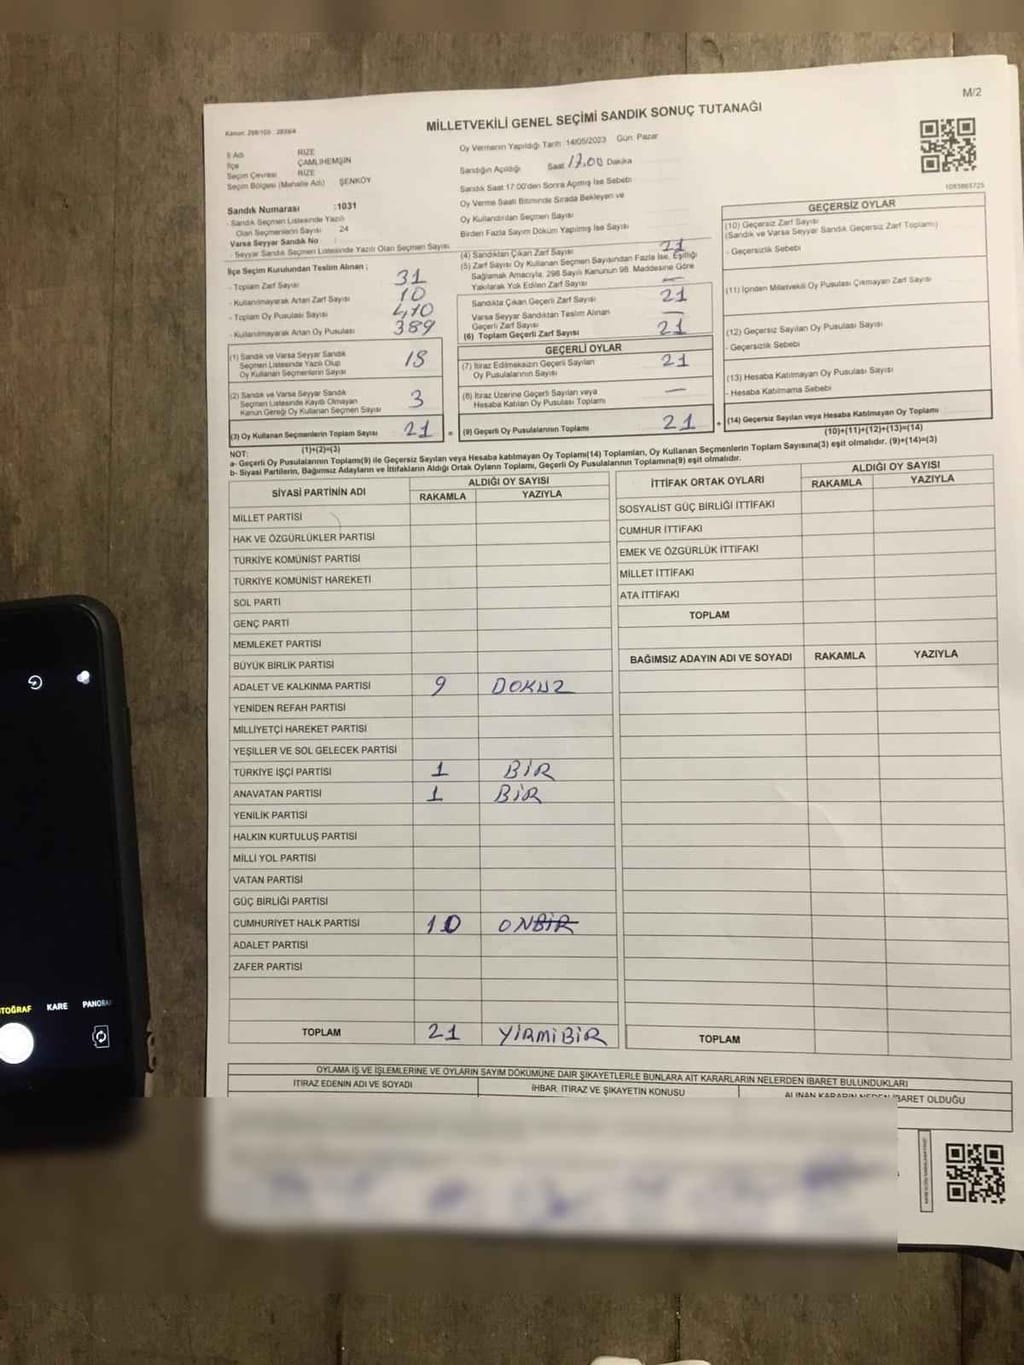 M/2
MİLLETVEKİLİ GENEL SEÇİMİ SANDIK SONUÇ TUTANAĞI
İl Adı RİZE
İlçe ÇAMLIHEMŞİN
Seçim Çevresi RİZE
Seçim Bölgesi (Mahalle Adı) ŞENKÖY
Sandık Numarası :1031
- Sandık Seçmen Listesinde Yazılı
Olan Seçmenlerin Sayısı 24
Varsa Seyyar Sandık No
- Seyyar Sandık Listesinde Yazılı Olan Seçmen Sayısı
Oy Vermenin Yapıldığı Tarih :14/05/2023 Gün: Pazar
Sandığın Açıldığı Saat 17.00 Dakika
Sandık Saat 17:00'den Sonra Açılmış İse Sebebi
Oy Verme Saati Bitiminde Sırada Bekleyen ve
Oy Kullandırılan Seçmen Sayısı
Birden Fazla Sayım Döküm Yapılmış İse Sayısı
1093865725
İlçe Seçim Kurulundan Teslim Alınan ;
- Toplam Zarf Sayısı 31
- Kullanılmayarak Artan Zarf Sayısı 10
- Toplam Oy Pusulası Sayısı 410
- Kullanılmayarak Artan Oy Pusulası 389
(1) Sandık ve Varsa Seyyar Sandık
Seçmen Listesinde Yazılı Olup
Oy Kullanan Seçmenlerin Sayısı 18
(2) Sandık ve Varsa Seyyar Sandık
Seçmen Listesinde Kayıtlı Olmayan
Kanun Gereği Oy Kullanan Seçmen Sayısı 3
(3) Oy Kullanan Seçmenlerin Toplam Sayısı 21
(1)+(2)=(3)
(4) Sandıktan Çıkan Zarf Sayısı 21
(5) Zarf Sayısı Oy Kullanan Seçmen Sayısından Fazla İse, Eşitliği
Sağlamak Amacıyla, 298 Sayılı Kanunun 98. Maddesine Göre
Yakılarak Yok Edilen Zarf Sayısı —
Sandıkta Çıkan Geçerli Zarf Sayısı 21
Varsa Seyyar Sandıktan Teslim Alınan
Geçerli Zarf Sayısı —
(6) Toplam Geçerli Zarf Sayısı 21
GEÇERLİ OYLAR
(7) İtiraz Edilmeksizin Geçerli Sayılan
Oy Pusulalarının Sayısı 21
(8) İtiraz Üzerine Geçerli Sayılan veya
Hesaba Katılan Oy Pusulası Toplamı —
= (9) Geçerli Oy Pusulalarının Toplamı 21 +
GEÇERSİZ OYLAR
(10) Geçersiz Zarf Sayısı
(Sandık ve Varsa Seyyar Sandık Geçersiz Zarf Toplamı)
- Geçersizlik Sebebi
(11) İçinden Milletvekili Oy Pusulası Çıkmayan Zarf Sayısı
(12) Geçersiz Sayılan Oy Pusulası Sayısı
- Geçersizlik Sebebi
(13) Hesaba Katılmayan Oy Pusulası Sayısı
- Hesaba Katılmama Sebebi
(14) Geçersiz Sayılan veya Hesaba Katılmayan Oy Toplamı
(10)+(11)+(12)+(13)=(14)
NOT:
a- Geçerli Oy Pusulalarının Toplamı(9) ile Geçersiz Sayılan veya Hesaba katılmayan Oy Toplamı(14) Toplamları, Oy Kullanan Seçmenlerin Toplam Sayısına(3) eşit olmalıdır. (9)+(14)=(3)
b- Siyasi Partilerin, Bağımsız Adayların ve İttifakların Aldığı Ortak Oyların Toplamı, Geçerli Oy Pusulalarının Toplamına(9) eşit olmalıdır.
SİYASİ PARTİNİN ADI ALDIĞI OY SAYISI
RAKAMLA YAZIYLA
MİLLET PARTİSİ
HAK VE ÖZGÜRLÜKLER PARTİSİ
TÜRKİYE KOMÜNİST PARTİSİ
TÜRKİYE KOMÜNİST HAREKETİ
SOL PARTİ
GENÇ PARTİ
MEMLEKET PARTİSİ
BÜYÜK BİRLİK PARTİSİ
ADALET VE KALKINMA PARTİSİ 9 DOKUZ
YENİDEN REFAH PARTİSİ
MİLLİYETÇİ HAREKET PARTİSİ
YEŞİLLER VE SOL GELECEK PARTİSİ
TÜRKİYE İŞÇİ PARTİSİ 1 BİR
ANAVATAN PARTİSİ 1 BİR
YENİLİK PARTİSİ
HALKIN KURTULUŞ PARTİSİ
MİLLİ YOL PARTİSİ
VATAN PARTİSİ
GÜÇ BİRLİĞİ PARTİSİ
CUMHURİYET HALK PARTİSİ 10 ONBİR
ADALET PARTİSİ
ZAFER PARTİSİ
TOPLAM 21 YİRMİBİR
İTTİFAK ORTAK OYLARI ALDIĞI OY SAYISI
RAKAMLA YAZIYLA
SOSYALİST GÜÇ BİRLİĞİ İTTİFAKI
CUMHUR İTTİFAKI
EMEK VE ÖZGÜRLÜK İTTİFAKI
MİLLET İTTİFAKI
ATA İTTİFAKI
TOPLAM
BAĞIMSIZ ADAYIN ADI VE SOYADI RAKAMLA YAZIYLA
TOPLAM
OYLAMA İŞ VE İŞLEMLERİNE VE OYLARIN SAYIM DÖKÜMÜNE DAİR ŞİKAYETLERLE BUNLARA AİT KARARLARIN NELERDEN İBARET BULUNDUKLARI
İTİRAZ EDENİN ADI VE SOYADI İHBAR, İTİRAZ VE ŞİKAYETİN KONUSU ALINAN KARARIN NEDEN İBARET OLDUĞU
TOĞRAF KARE PANORA